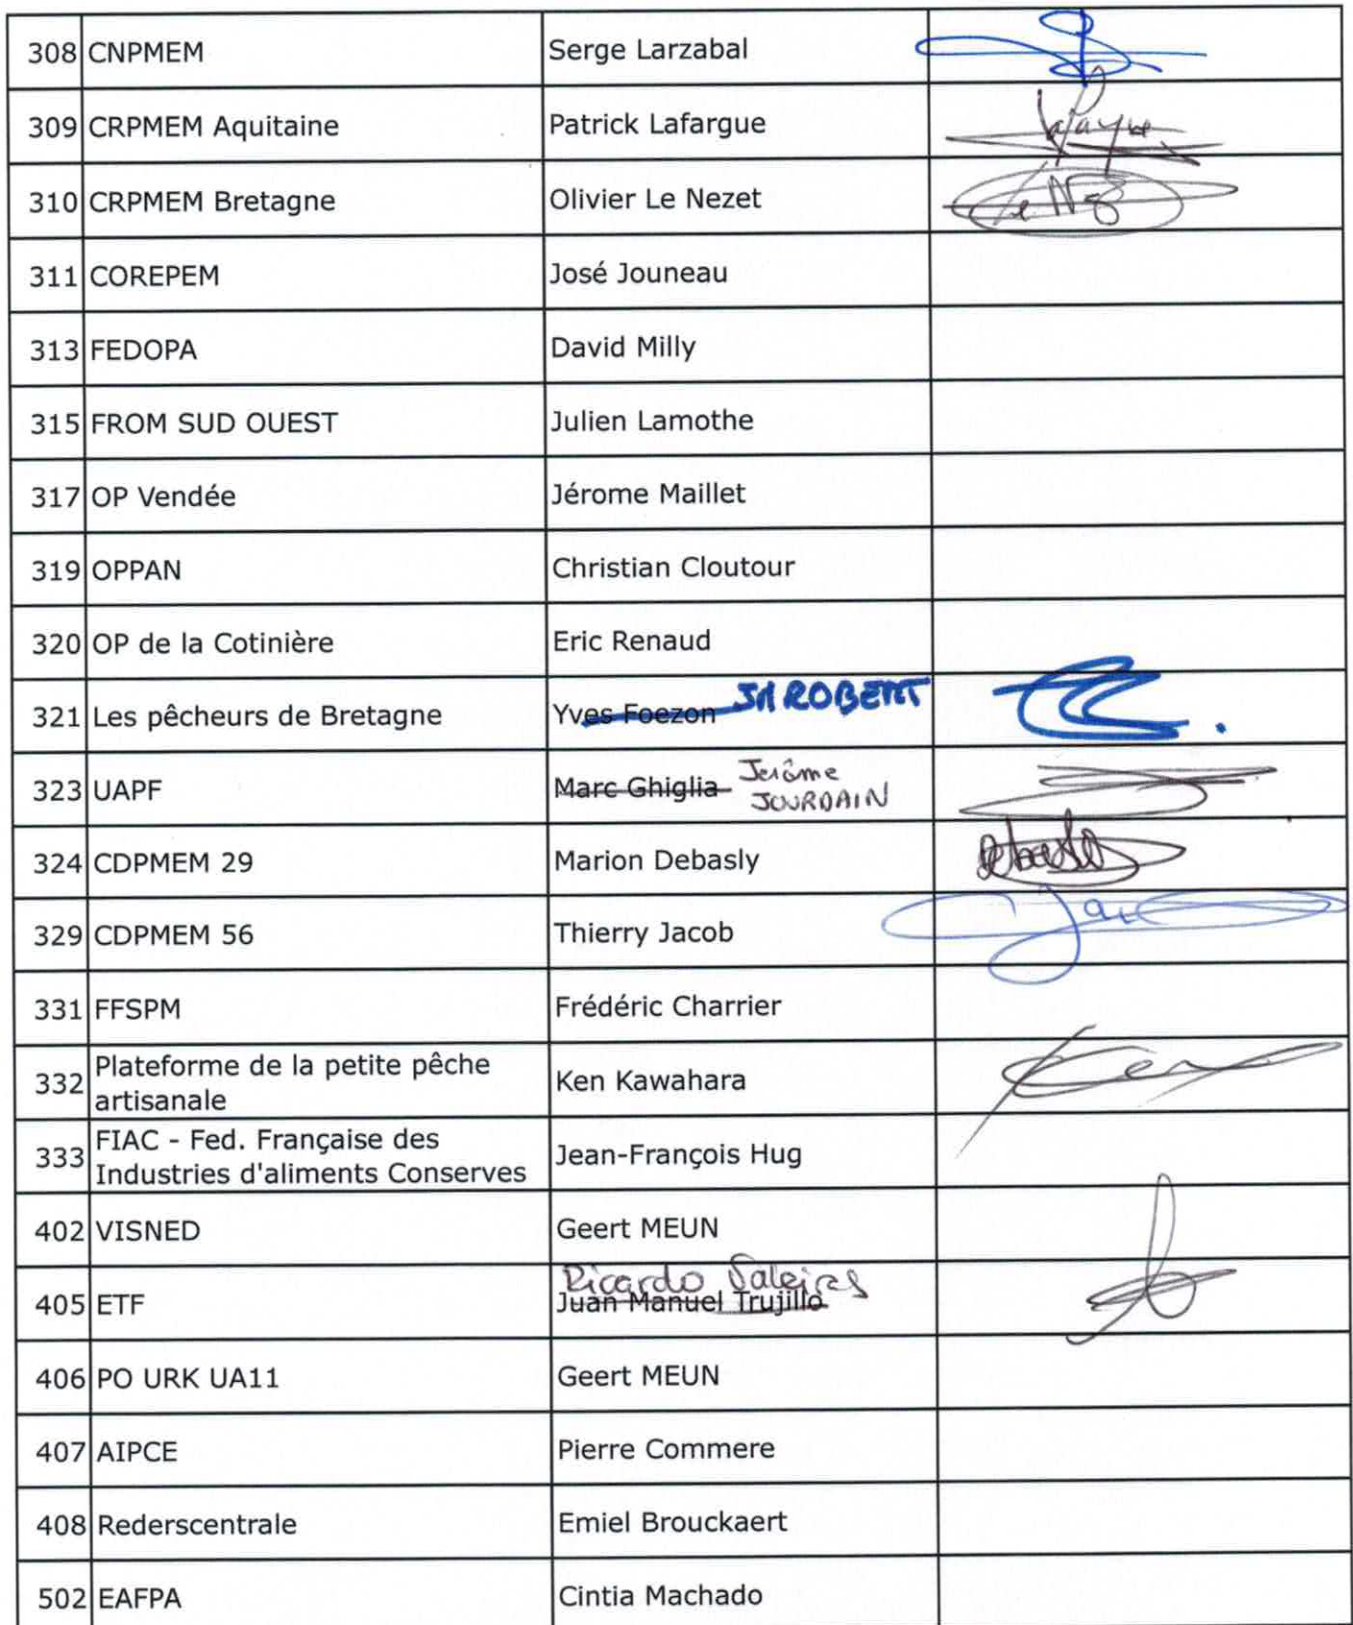 308 CNPMEM Serge Larzabal
309 CRPMEM Aquitaine Patrick Lafargue
310 CRPMEM Bretagne Olivier Le Nezet
311 COREPEM José Jouneau
313 FEDOPA David Milly
315 FROM SUD OUEST Julien Lamothe
317 OP Vendée Jérome Maillet
319 OPPAN Christian Cloutour
320 OP de la Cotinière Eric Renaud
321 Les pêcheurs de Bretagne Yves Foezon JM ROBERT
323 UAPF Marc Ghiglia Jerôme
JOURDAIN
324 CDPMEM 29 Marion Debasly
329 CDPMEM 56 Thierry Jacob
331 FFSPM Frédéric Charrier
332 Plateforme de la petite pêche
artisanale Ken Kawahara
333 FIAC - Fed. Française des
Industries d'aliments Conserves Jean-François Hug
402 VISNED Geert MEUN
Ricardo
405 ETF Juan Manuel Trujillo
406 PO URK UA11 Geert MEUN
407 AIPCE Pierre Commere
408 Rederscentrale Emiel Brouckaert
502 EAFPA Cintia Machado